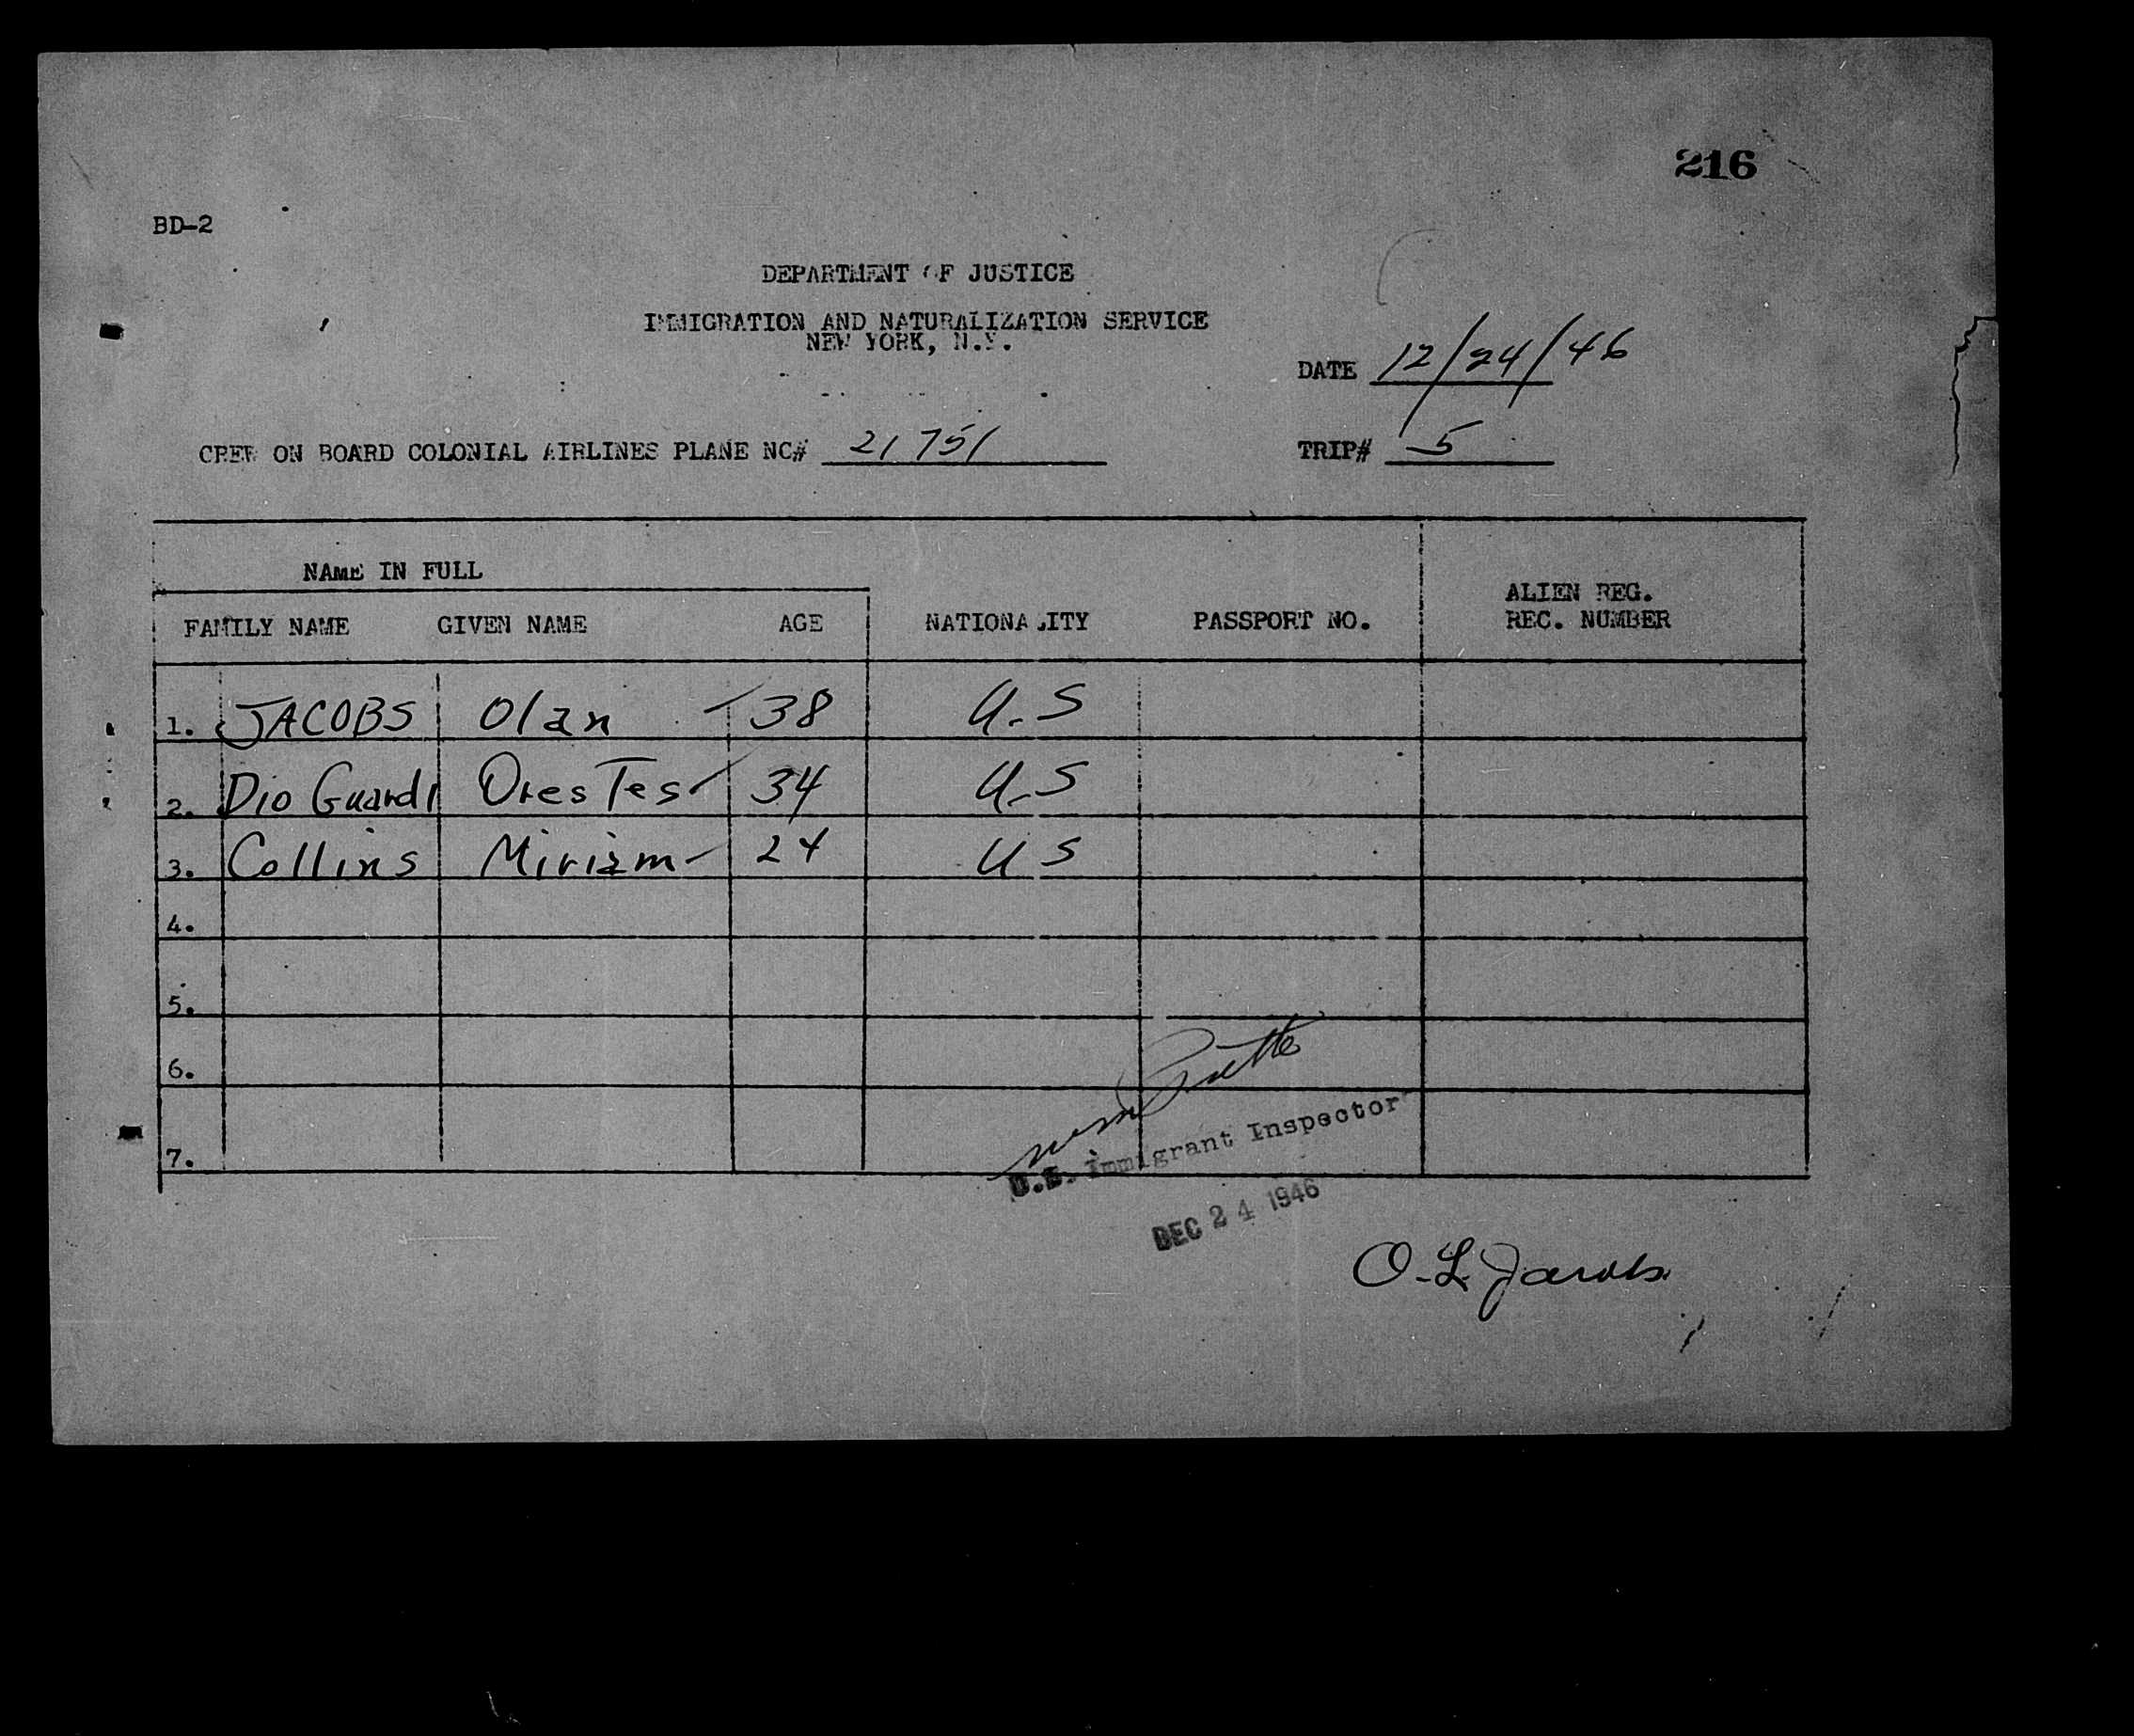 216
BD-2
DEPARTMENT OF JUSTICE
IMMIGRATION AND NATURALIZATION SERVICE
NEW YORK, N.Y.
DATE 12/24/46
CREW ON BOARD COLONIAL AIRLINES PLANE NC# 21751 TRIP# 5
NAME IN FULL
FAMILY NAME GIVEN NAME AGE NATIONALITY PASSPORT NO. ALIEN REG. REC. NUMBER
1. JACOBS Olan 38 U.S
2. Dio Guardi OresTes 34 U.S
3. Collins Miriam 24 U S
4.
5.
6.
7.
U.S. Immigrant Inspector
DEC 24 1946
O.L. Jacobs